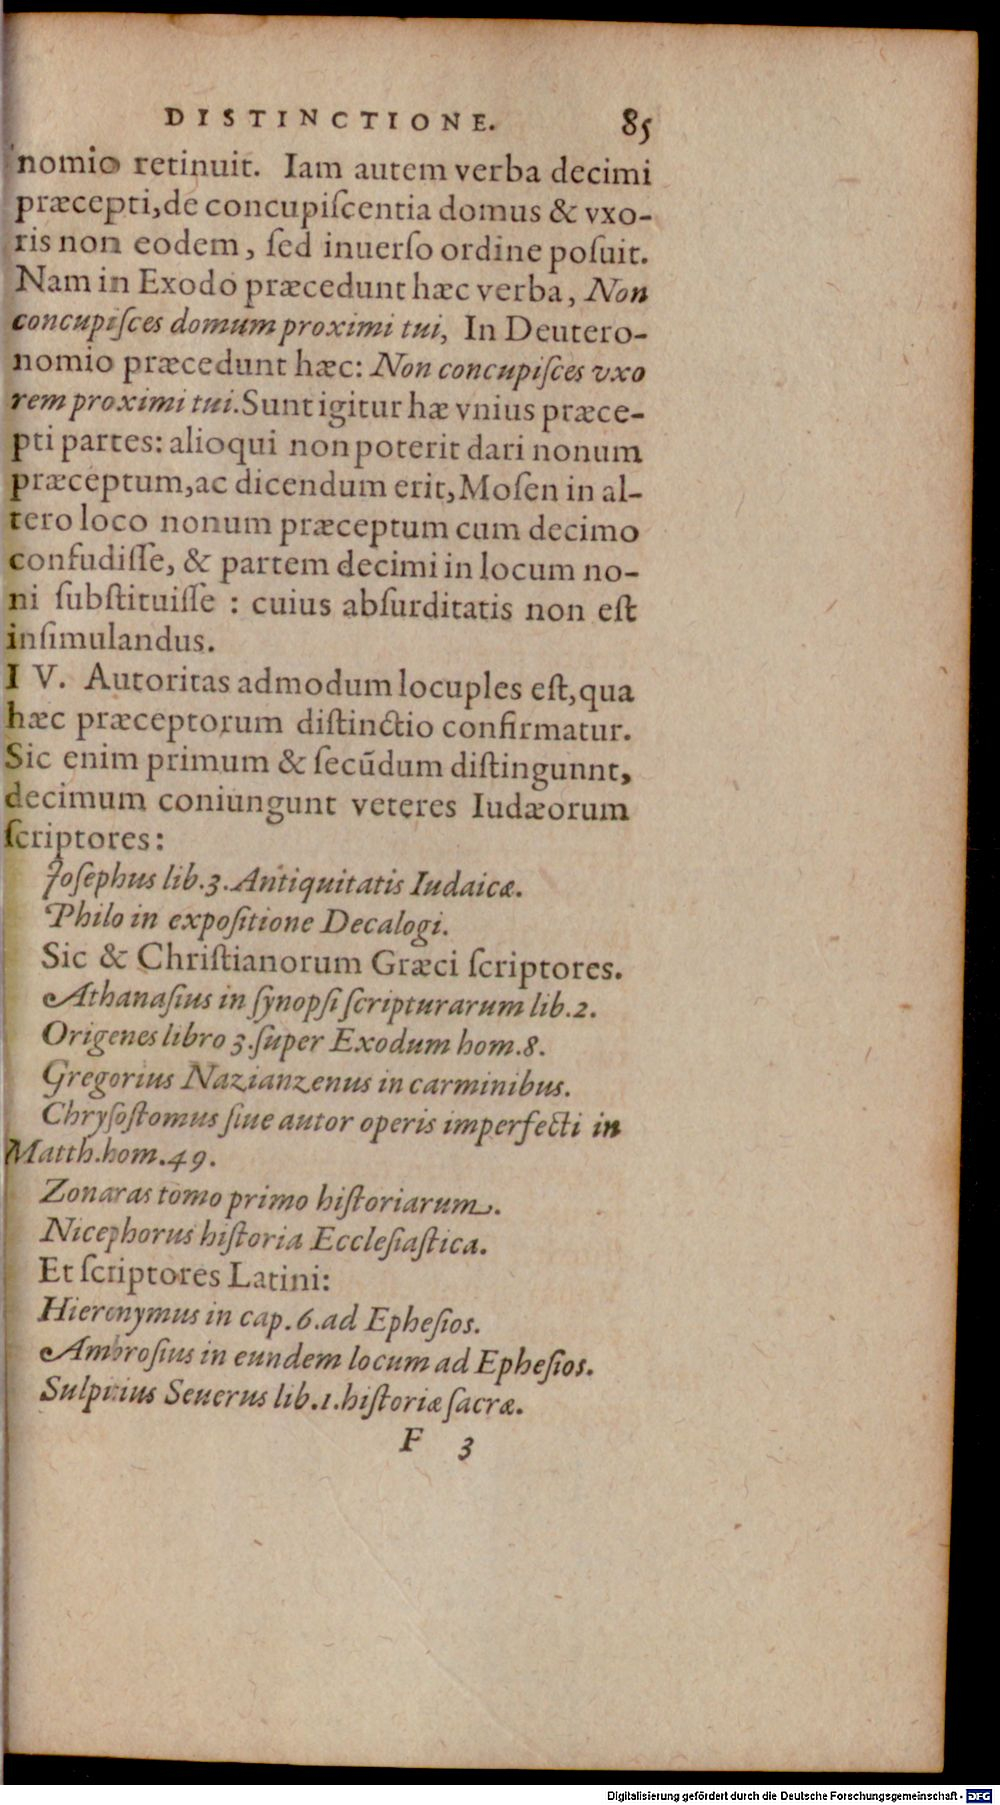 DISTINCTIONE. 85
nomio retinuit. Iam autem verba decimi
præcepti, de concupiſcentia domus & vxo-
ris non eodem, ſed inuerſo ordine poſuit.
Nam in Exodo præcedunt hæc verba, Non
concupiſces domum proximi tui, In Deutero-
nomio præcedunt hæc: Non concupiſces vxo
rem proximi tui. Sunt igitur hæ vnius præce-
pti partes: alioqui non poterit dari nonum
præceptum, ac dicendum erit, Moſen in al-
tero loco nonum præceptum cum decimo
confudiſſe, & partem decimi in locum no-
ni ſubſtituiſſe : cuius abſurditatis non eſt
inſimulandus.
I V. Autoritas admodum locuples eſt, qua
hæc præceptorum diſtinctio confirmatur.
Sic enim primum & ſecūdum diſtingunnt,
decimum coniungunt veteres Iudæorum
ſcriptores:
Joſephus lib. 3. Antiquitatis Iudaicæ.
Philo in expoſitione Decalogi.
Sic & Chriſtianorum Græci ſcriptores.
Athanaſius in ſynopſi ſcripturarum lib. 2.
Origenes libro 3. ſuper Exodum hom. 8.
Gregorius Nazianzenus in carminibus.
Chryſoſtomus ſiue autor operis imperfecti in
Matth. hom. 49.
Zonaras tomo primo hiſtoriarum.
Nicephorus hiſtoria Eccleſiaſtica.
Et ſcriptores Latini:
Hieronymus in cap. 6. ad Epheſios.
Ambroſius in eundem locum ad Epheſios.
Sulpitius Seuerus lib. 1. hiſtoriæ ſacræ.
F 3
Digitalisierung gefördert durch die Deutsche Forschungsgemeinschaft - DFG